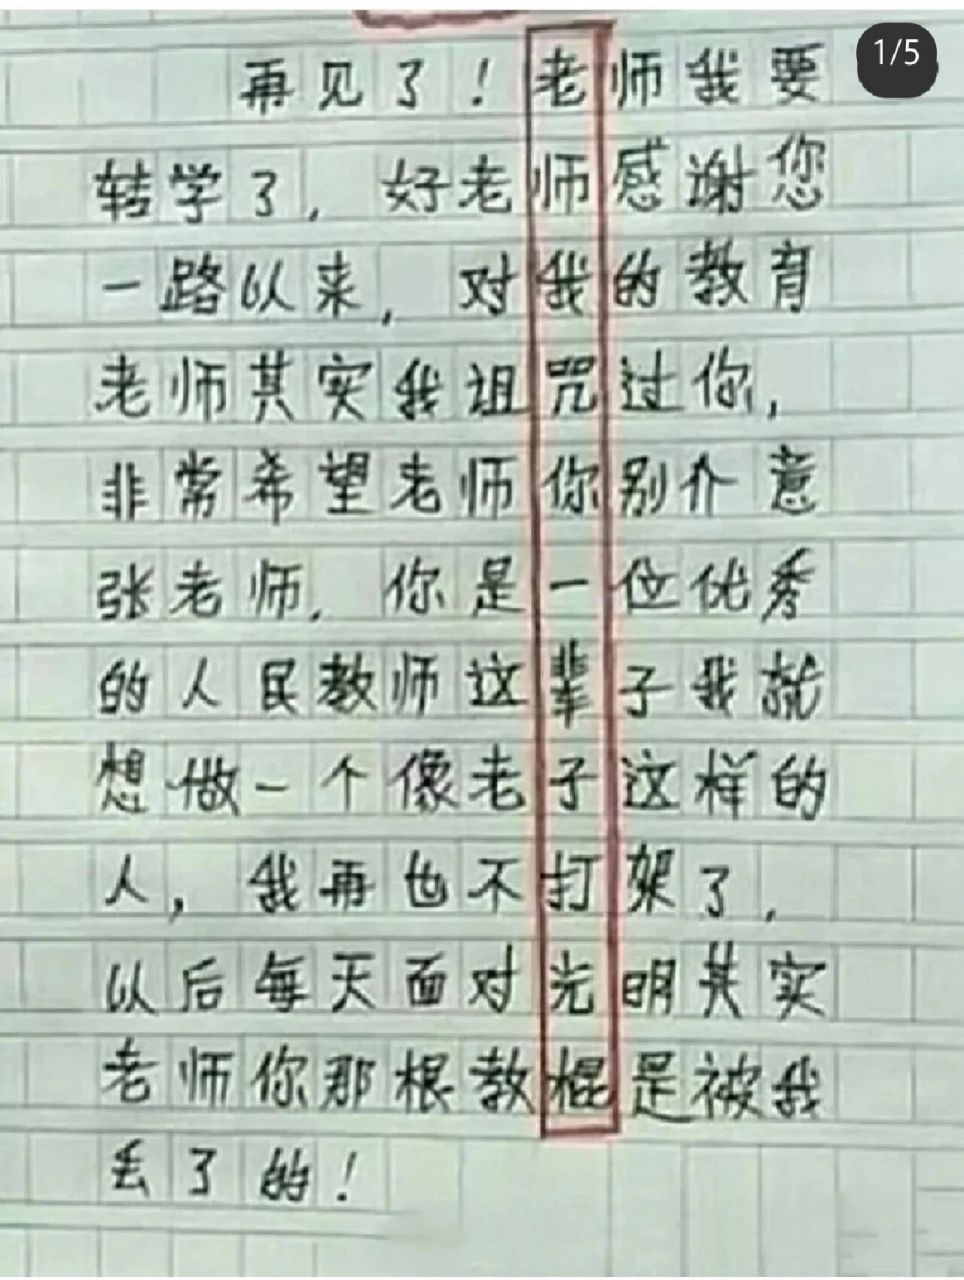 1/5
再见了！老师我要
转学了，好老师感谢您
一路以来，对我的教育
老师其实我诅咒过你，
非常希望老师你别介意
张老师，你是一位优秀
的人民教师这辈子我就
想做一个像老子这样的
人，我再也不打架了，
以后每天面对光明其实
老师你那根教棍是被我
丢了的！